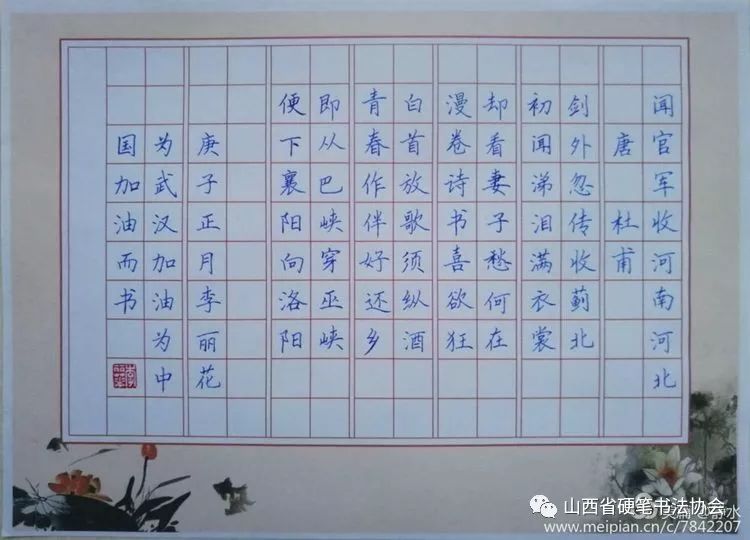 闻官军收河南河北
唐 杜甫
剑外忽传收蓟北
初闻涕泪满衣裳
却看妻子愁何在
漫卷诗书喜欲狂
白首放歌须纵酒
青春作伴好还乡
即从巴峡穿巫峡
便下襄阳向洛阳
庚子正月李丽花
为武汉加油为中
国加油而书
山西省硬笔书法协会
www.meipian.cn/c/7842207